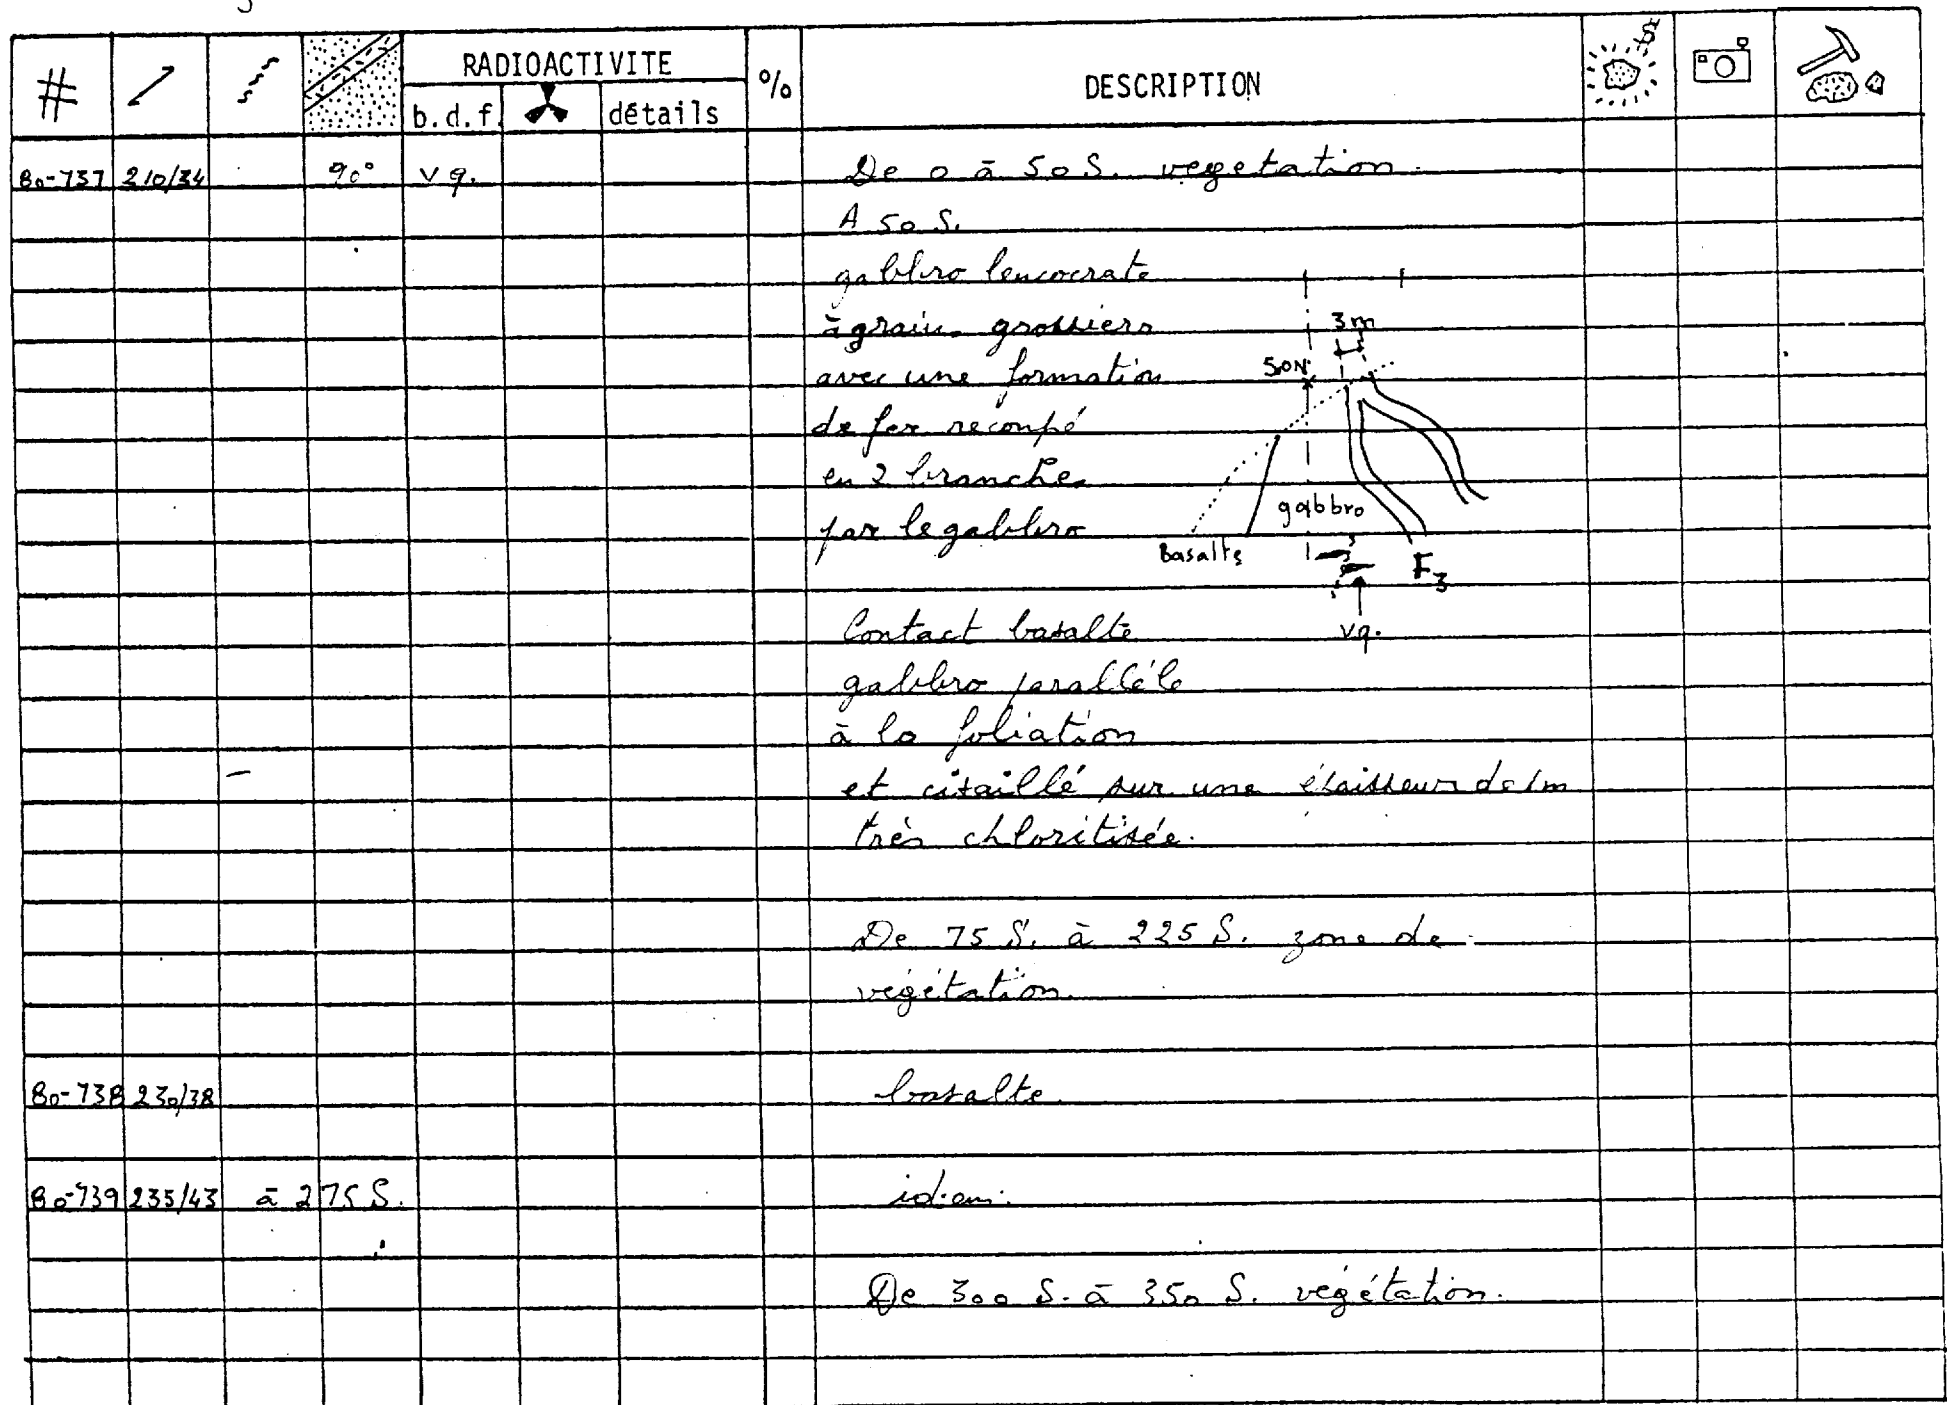 # RADIOACTIVITE % DESCRIPTION $
b.d.f. détails
80-737 210/34 90° v q. De 0 à 50 S. vegetation.
A 50 S.
gabbro leucocrate
à grains grossiers 3m
avec une formation 50N
de fer recoupé
en 2 branches
gabbro
par le gabbro Basalte F3
Contact basalte vq.
gabbro parallèle
à la foliation
et cisaillé sur une épaisseur de 1m
très chloritisée.
De 75 S. à 225 S. zone de
végétation.
80-738 230/38 basalte.
80-739 235/43 à 275 S. idem.
De 300 S. à 350 S. végétation.